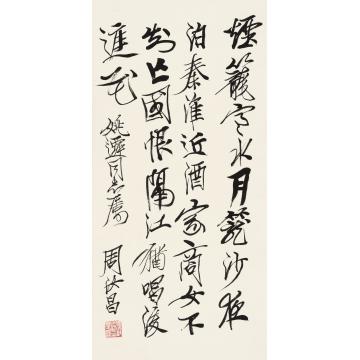 煙籠寒水月籠沙夜
泊秦淮近酒家商女不
知亡國恨隔江猶唱後
庭花 姚遷同志屬 周汝昌